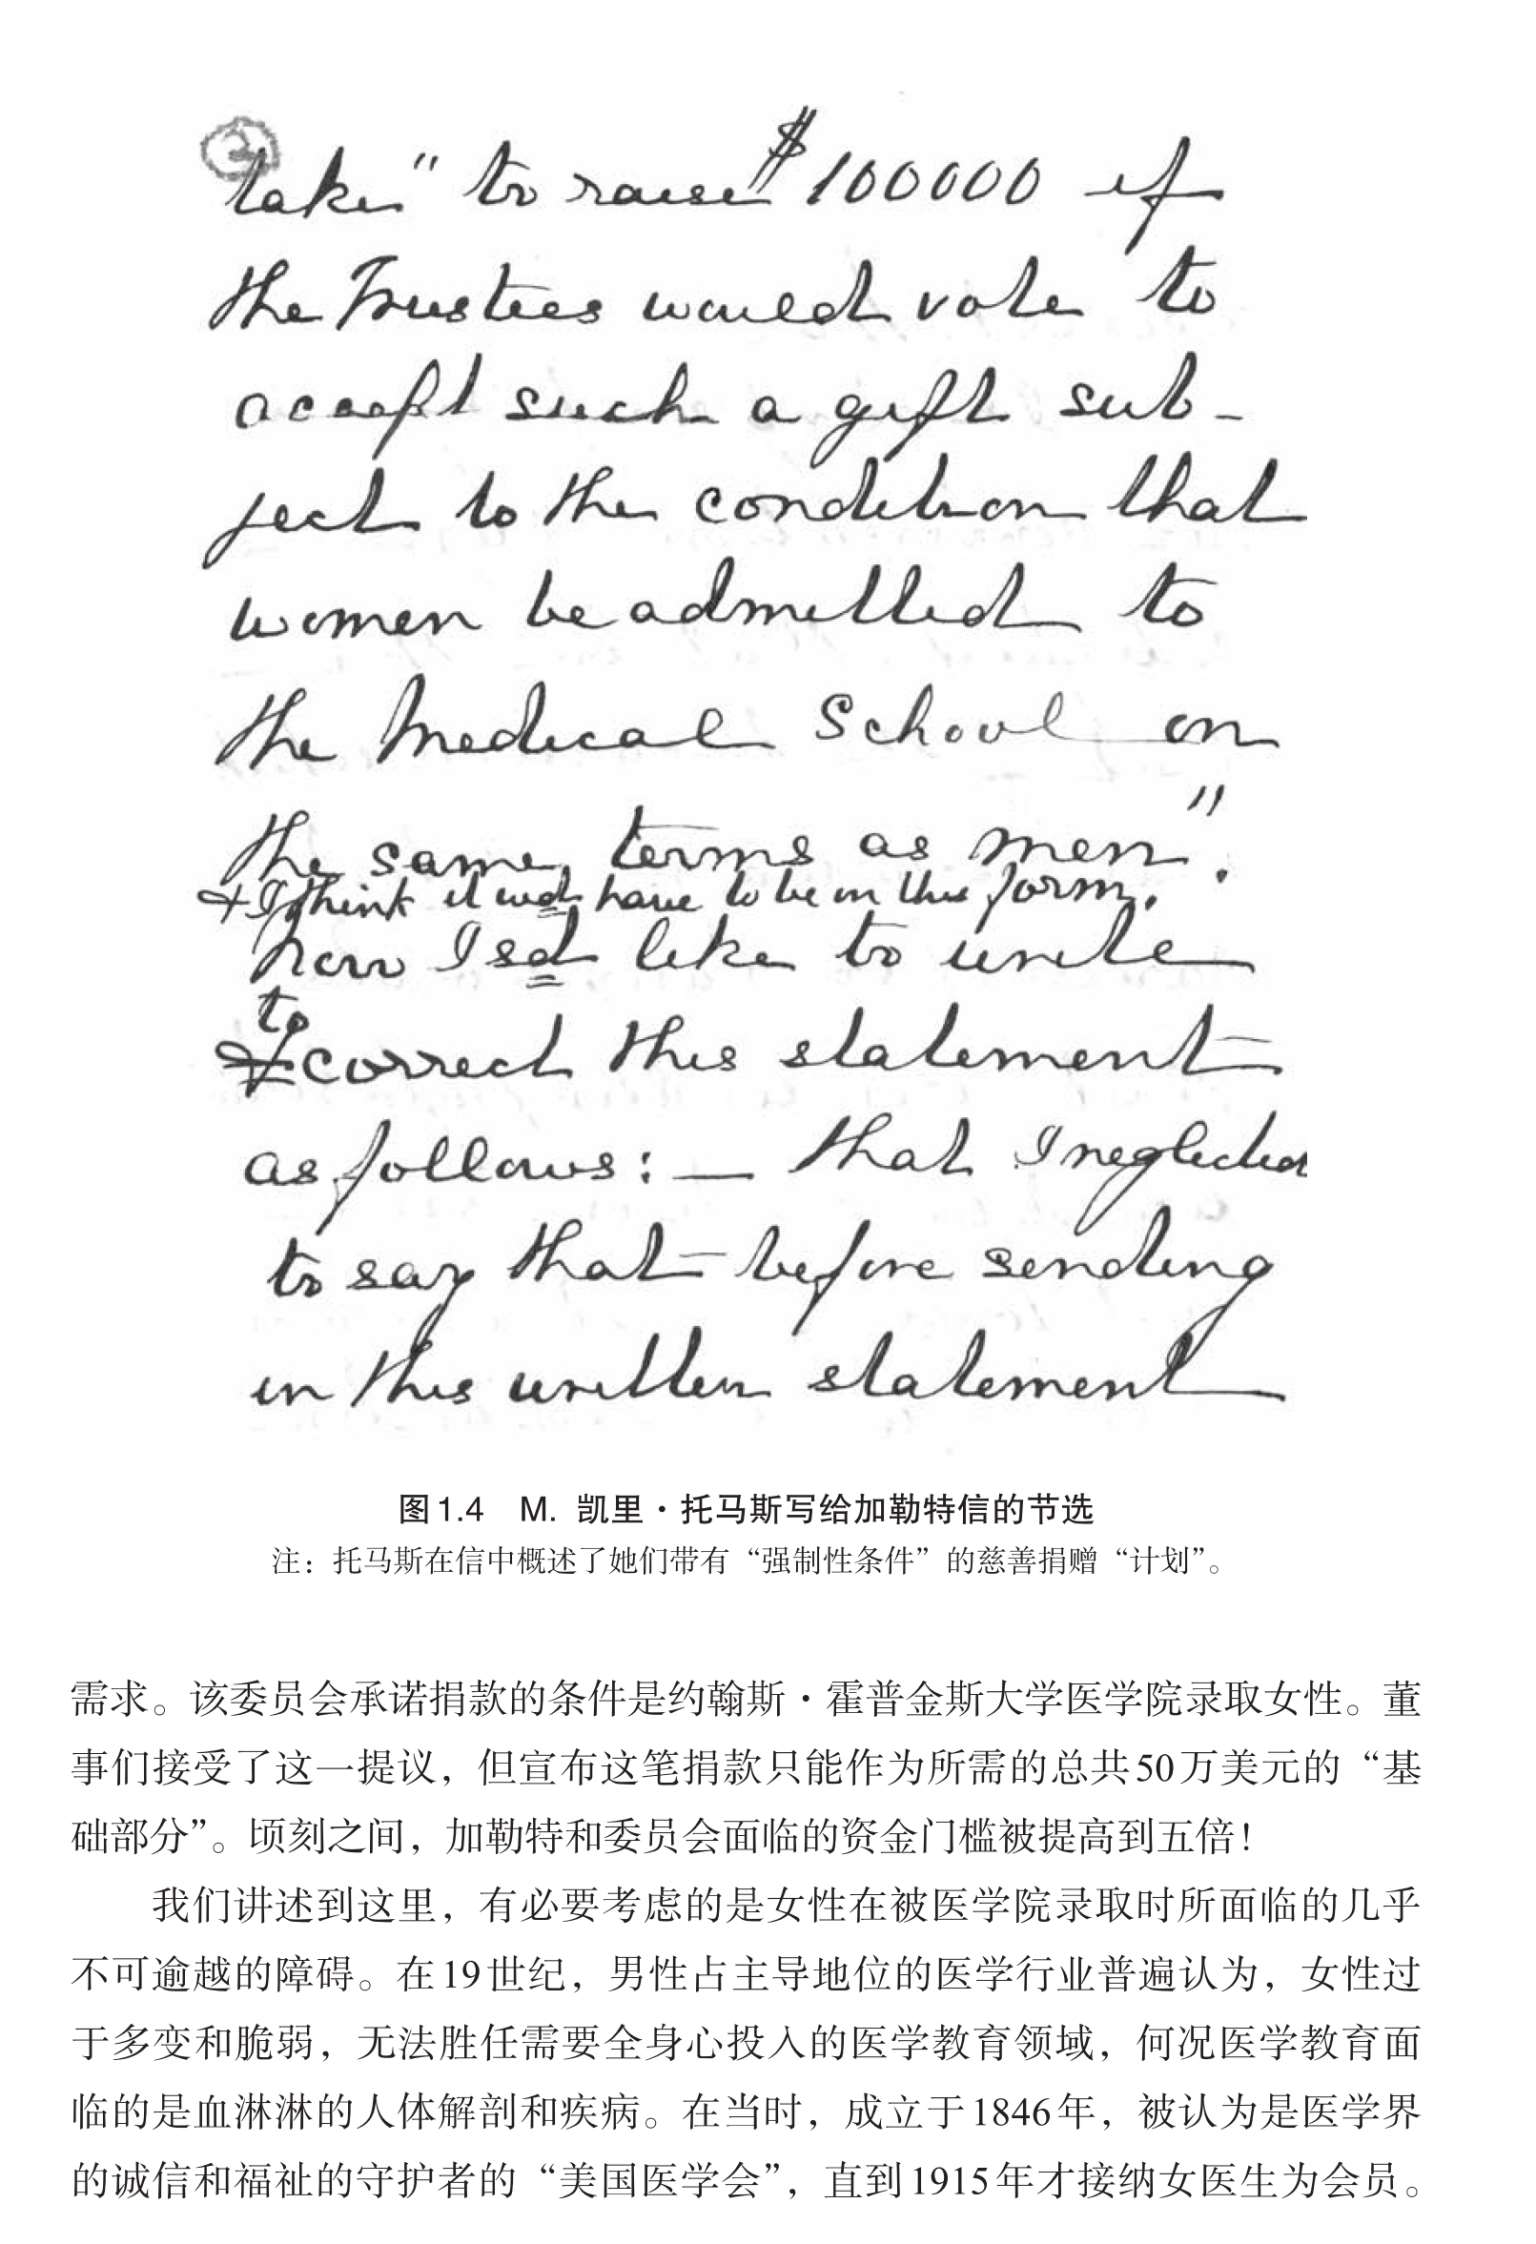 ②
take" to raise $100000 if
the Trustees would vote to
accept such a gift sub-
ject to the condition that
women be admitted to
the Medical School on
the same terms as men".
& I think it wd have to be in this form.
now I sd like to write
to
& correct this statement
as follows: — that I neglected
to say that – before sending
in this written statement
图1.4 M. 凯里·托马斯写给加勒特信的节选
注：托马斯在信中概述了她们带有“强制性条件”的慈善捐赠“计划”。
需求。该委员会承诺捐款的条件是约翰斯·霍普金斯大学医学院录取女性。董
事们接受了这一提议，但宣布这笔捐款只能作为所需的总共50万美元的“基
础部分”。顷刻之间，加勒特和委员会面临的资金门槛被提高到五倍！
我们讲述到这里，有必要考虑的是女性在被医学院录取时所面临的几乎
不可逾越的障碍。在19世纪，男性占主导地位的医学行业普遍认为，女性过
于多变和脆弱，无法胜任需要全身心投入的医学教育领域，何况医学教育面
临的是血淋淋的人体解剖和疾病。在当时，成立于1846年，被认为是医学界
的诚信和福祉的守护者的“美国医学会”，直到1915年才接纳女医生为会员。